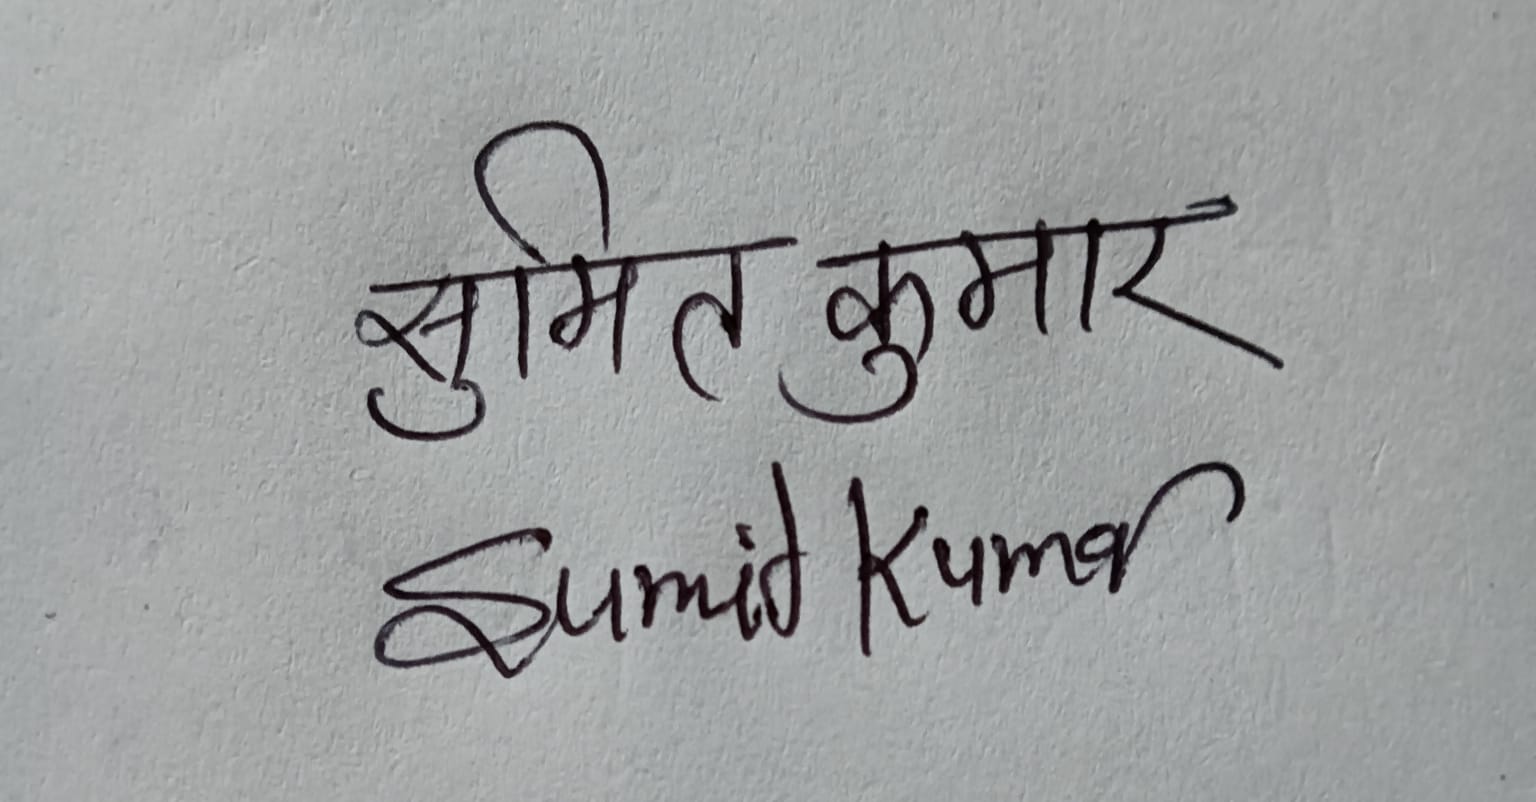 सुमित कुमार
Sumit Kumar